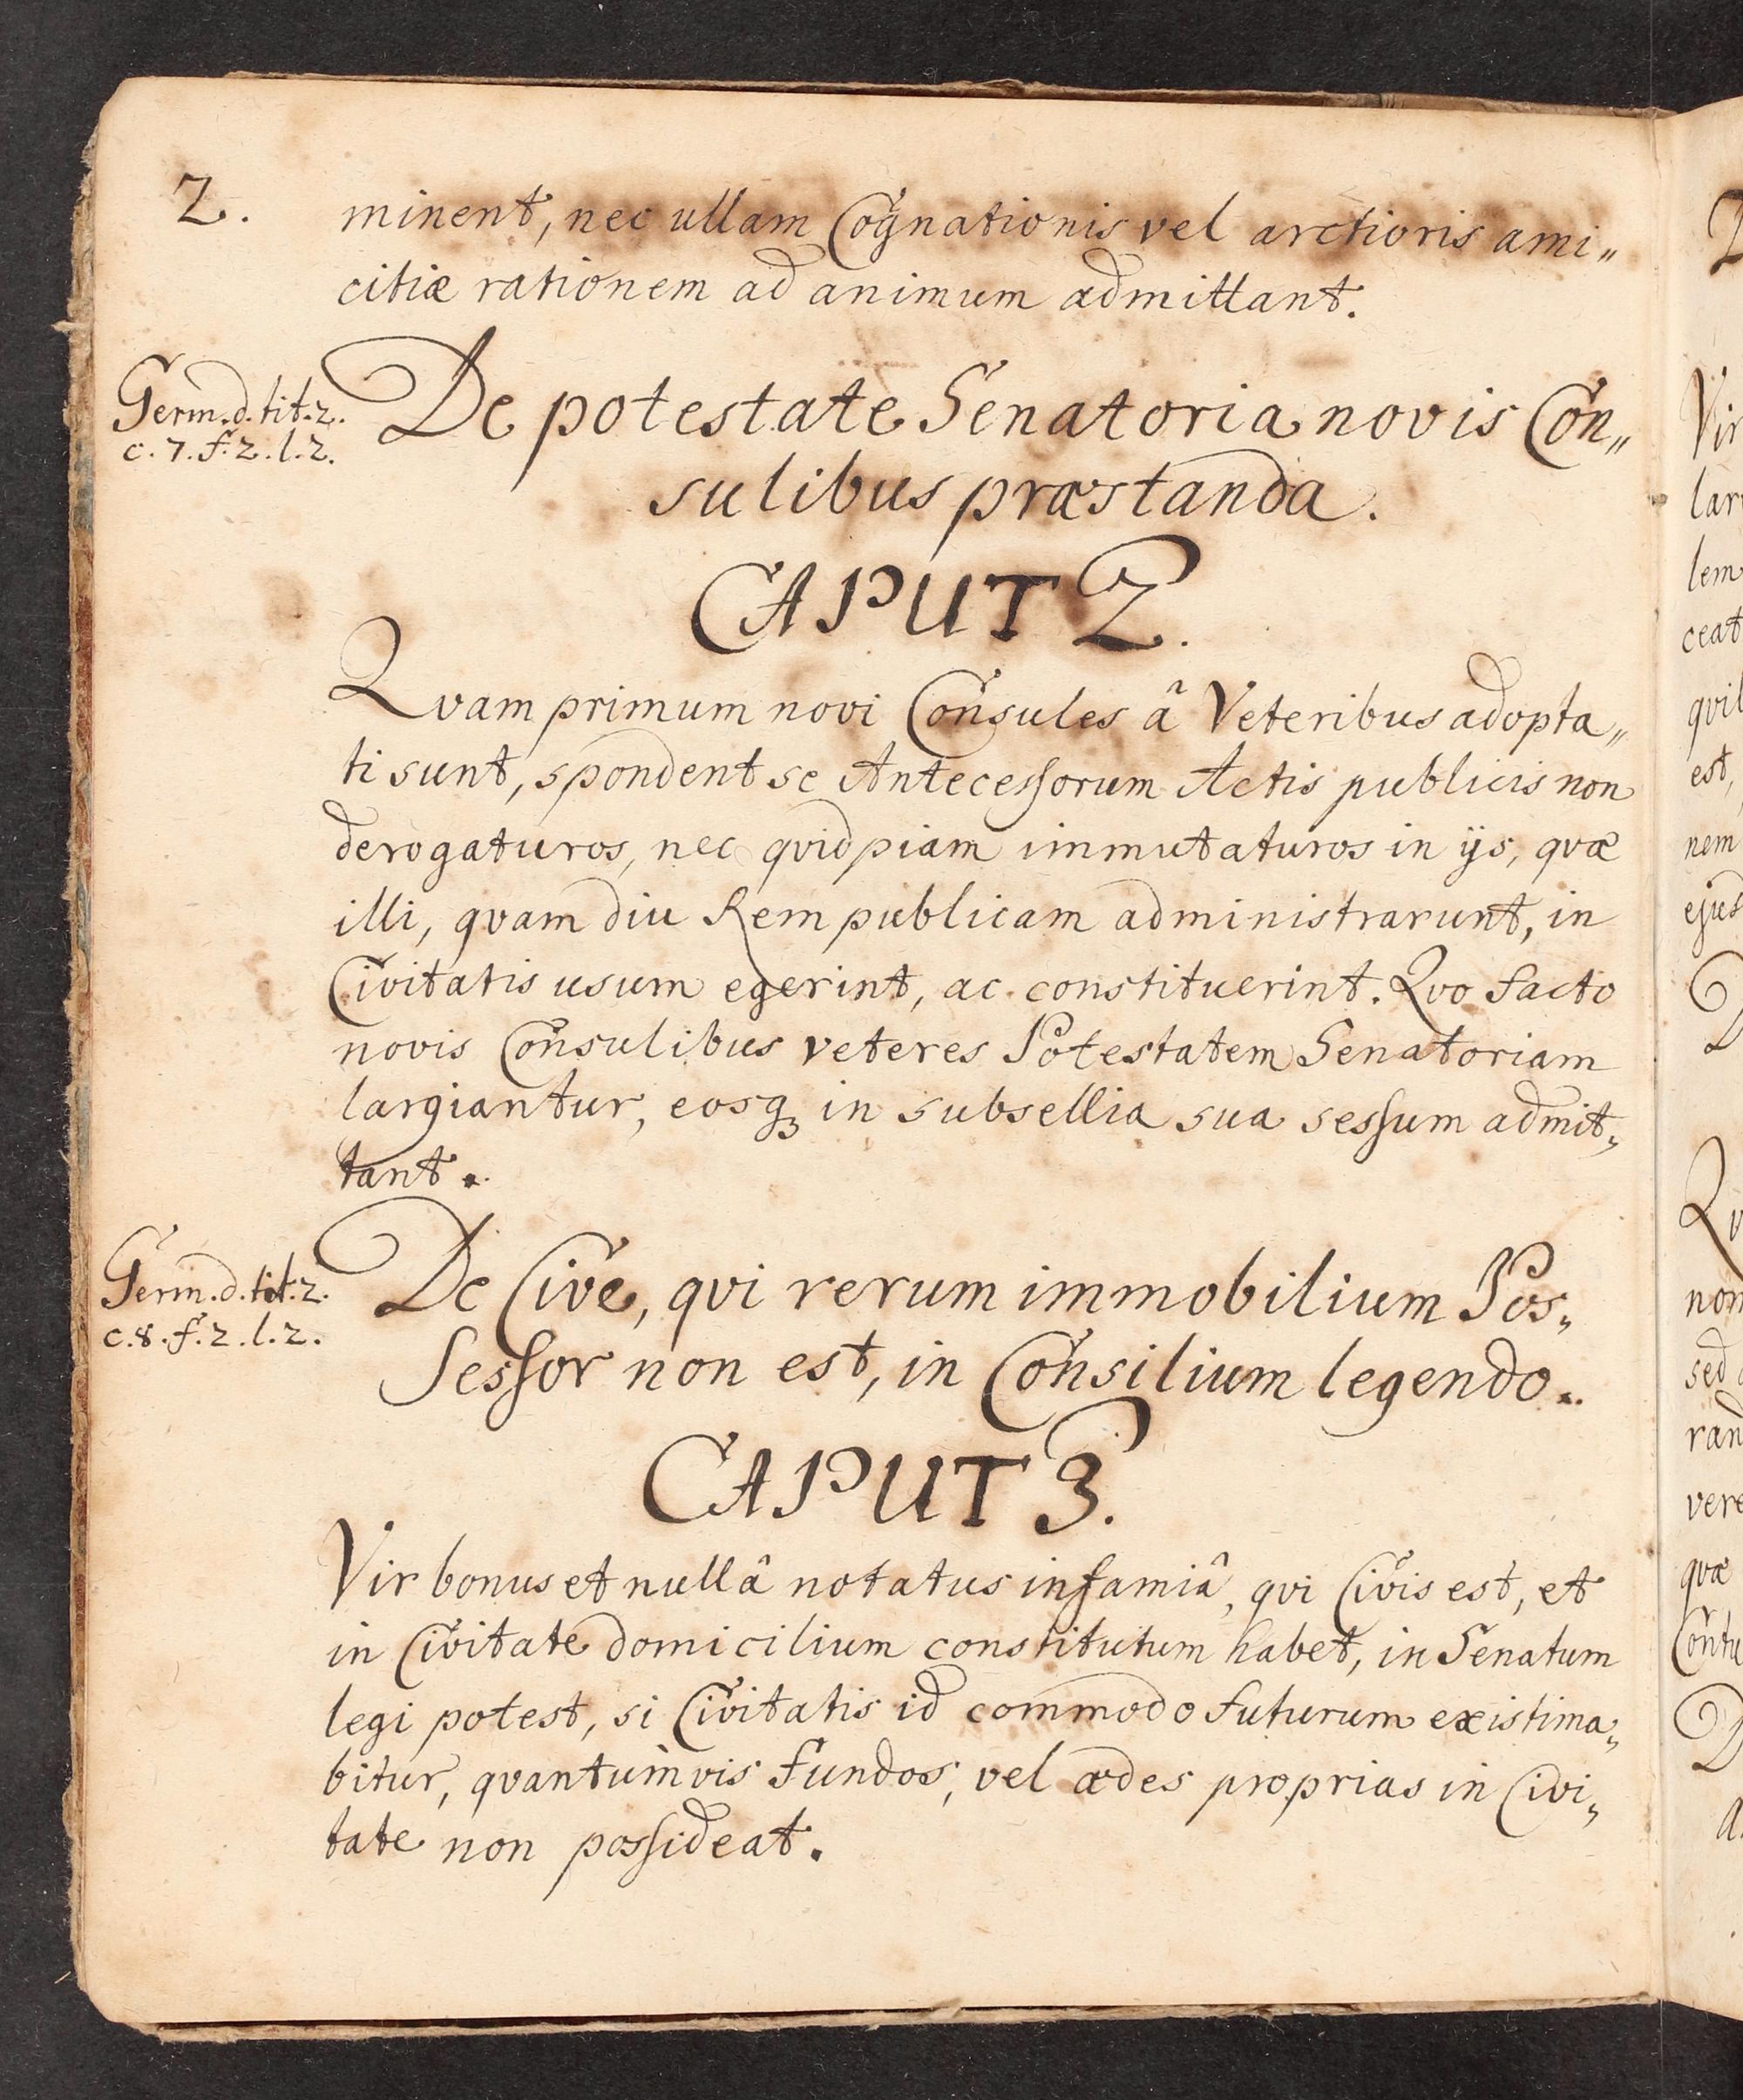 2.
minent, nec ullam Cognationis vel arctioris ami„
citiæ rationem ad animum admittant.
Germ. d. tit. 2.
c. 7. f. 2. l. 2.
De potestate Senatoria novis Con„
sulibus præstanda.
CAPUT 2.
Qvam primum novi Consules â Veteribus adopta„
ti sunt, spondent se Antecessorum Actis publicis non
derogaturos, nec qvidpiam immutaturos in ijs, qvæ
illi, qvam diu Rem publicam administrarunt, in
Civitatis usum egerint, ac constituerint. Qvo facto
novis Consulibus veteres Potestatem Senatoriam
largiantur, eosq₃ in subsellia sua sessum admit„
tant.
Germ. d. tit. 2.
c. 8. f. 2. l. 2.
De Cive, qvi rerum immobilium Pos„
sessor non est, in Consilium legendo.
CAPUT 3.
Vir bonus et nullâ notatus infamiâ, qvi Civis est, et
in Civitate domicilium constitutum habet, in Senatum
legi potest, si Civitatis id commodo futurum existima„
bitur, qvantumvis fundos, vel ædes proprias in Civi„
tate non possideat.
Vir
lar
lem
ceat
qvil
est,
nem
ejus
D
Qv
non
sed
ran
vere
qvæ
Contu
D